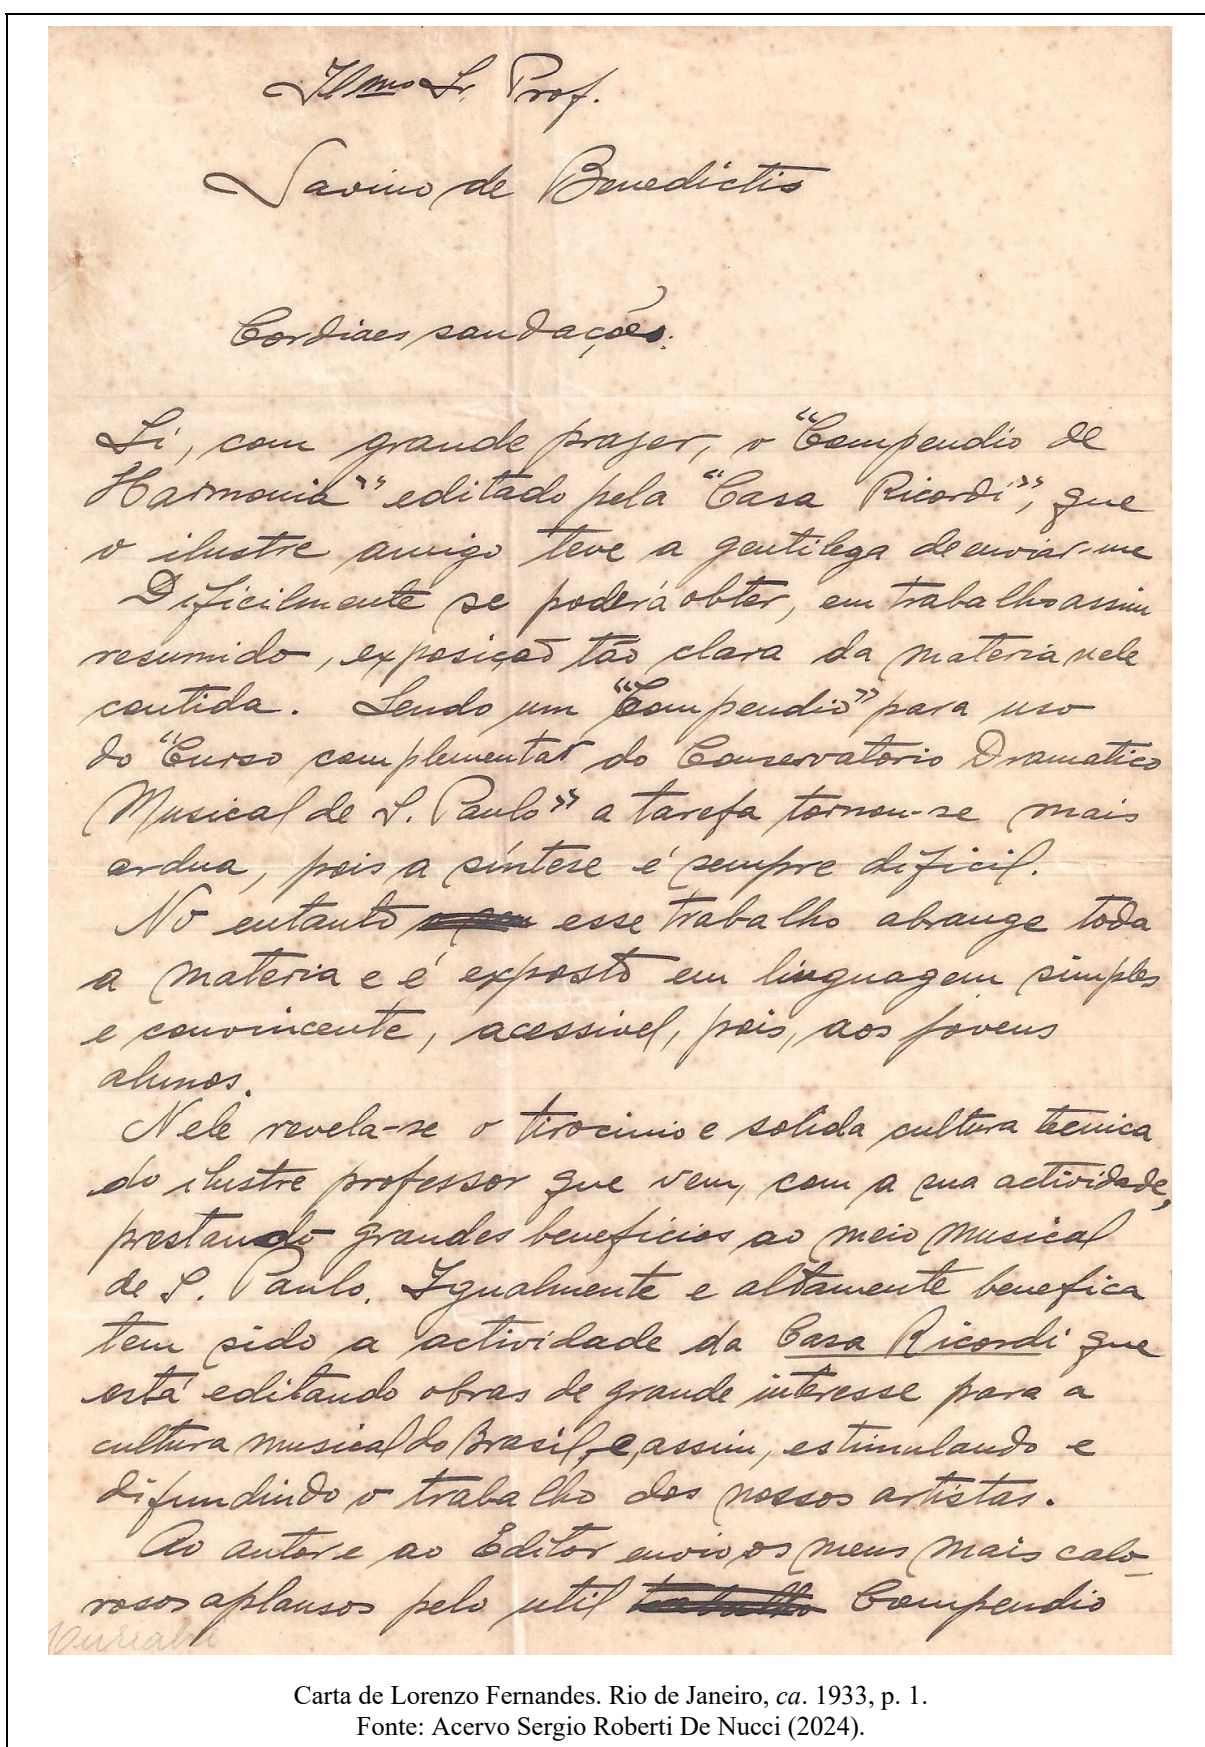 Illmo Sr. Prof.
Savino de Benedictis
Cordiaes saudações.
Li, com grande prazer, o "Compendio de
Harmonia" editado pela "Casa Ricordi", que
o ilustre amigo teve a gentileza de enviar-me
Dificilmente se poderá obter, em trabalho assim
resumido, exposição tão clara da materia nele
contida. Sendo um "Compendio" para uso
do "Curso complementar do Conservatorio Dramatico
Musical de S. Paulo" a tarefa tornou-se mais
ardua, pois a síntese é sempre dificil.
No entanto esse trabalho abrange toda
a materia e é exposto em linguagem simples
e convincente, acessivel, pois, aos jovens
alunos.
Nele revela-se o tirocinio e solida cultura tecnica
do ilustre professor que vem, com a sua actividade,
prestando grandes beneficios ao meio musical
de S. Paulo. Igualmente e altamente benefica
tem sido a actividade da Casa Ricordi que
está editando obras de grande interesse para a
cultura musical do Brasil, e, assim, estimulando e
difundindo o trabalho dos nossos artistas.
Ao autor e ao Editor envio os meus mais calo-
rosos aplausos pelo util trabalho Compendio
Carta de Lorenzo Fernandes. Rio de Janeiro, ca. 1933, p. 1.
Fonte: Acervo Sergio Roberti De Nucci (2024).